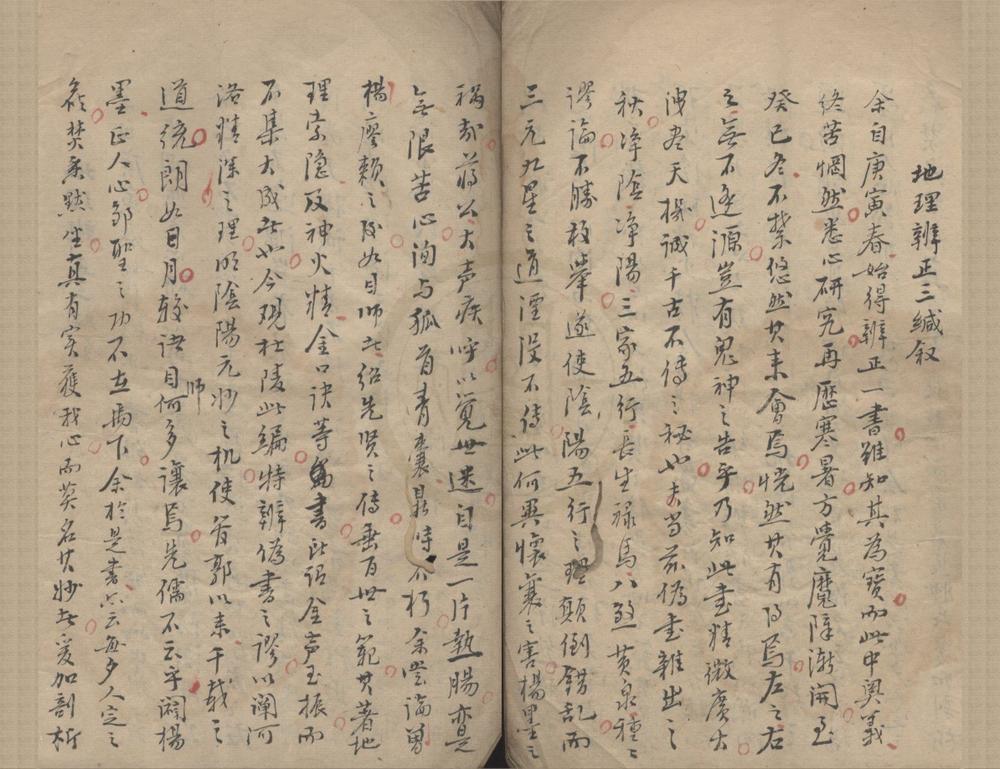 地理辨正三緘叙
余自庚寅春始得辨正一書雖知其為寶而此中奥義
終苦惘然悉心研究再歷寒暑方覺魔障漸開至
癸巳冬不禁悠然其来會焉恍然其有得焉左之右
之無不逢源豈有鬼神之告乎乃知此書精微廣大
洩盡天機誠千古不傳之秘也夫当茲偽書雜出之
秋净陰净陽三家五行長生禄馬八煞黄泉種種
謬論不勝枚舉遂使陰陽五行之理顛倒錯乱而
三元九星之道湮没不傳此何異懷襄之害楊墨之
禍哉蔣公大声疾呼以覚世迷自是一片熱腸亦是
無限苦心洵与狐首青囊並不朽余嘗論曾
楊廖賴之後如目师者紹先贤之傳垂百世之範其著地
理索隐及神火精金口诀等書此認金声玉振而
不集大成者也今观杜陵此編特辨偽書之謬以阐河
洛精深之理明陰陽元妙之机使管郭以来千载之
道統朗如日月较诸目师何多讓焉先儒不云乎闢楊
墨正人心鄒聖之功不在禹下余於是書亦云每夕人定之
後焚香默坐真有实獲我心而莫名其妙者爰加剖析